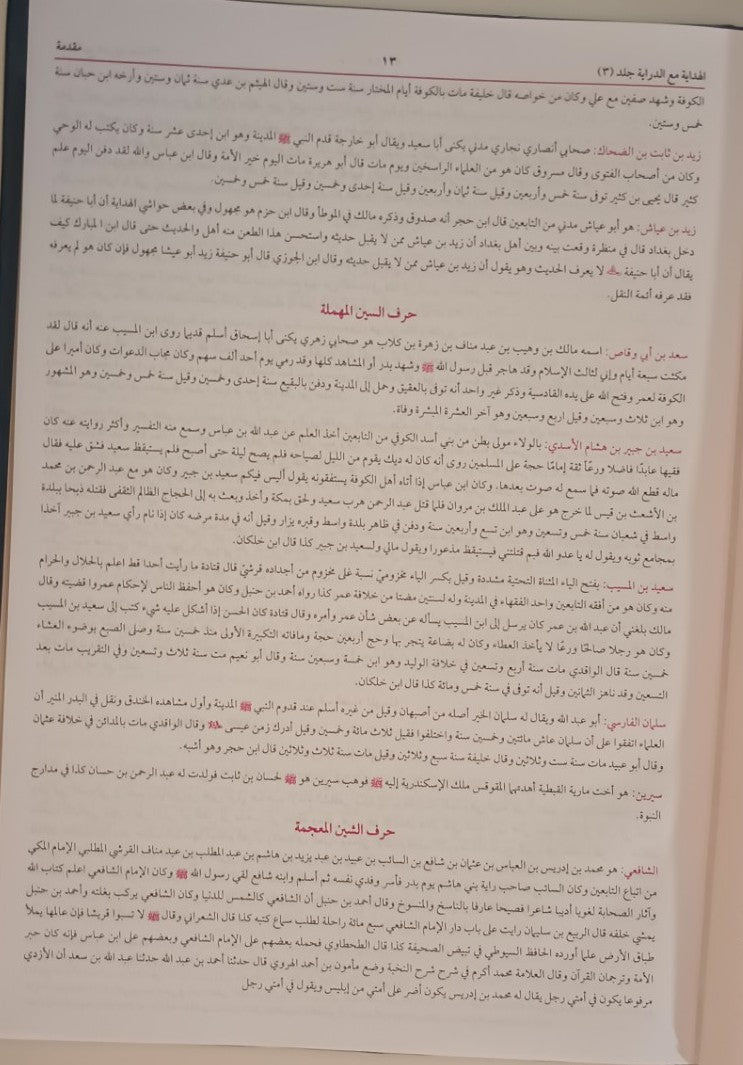 الهداية مع الدراية جلد (٣)
١٣
مقدمة
الكوفة وشهد صفين مع علي وكان من خواصه قال خليفة مات بالكوفة أيام المختار سنة ست وستين وقال الهيثم بن عدي سنة ثمان وستين وأرخه ابن حبان سنة
خمس وستين.
زيد بن ثابت بن الضحاك: صحابي أنصاري نجاري مدني يكنى أبا سعيد ويقال أبو خارجة قدم النبي ﷺ المدينة وهو ابن إحدى عشر سنة وكان يكتب له الوحي
وكان من أصحاب الفتوى وقال مسروق كان هو من العلماء الراسخين ويوم مات قال أبو هريرة مات اليوم خير الأمة وقال ابن عباس والله لقد دفن اليوم علم
كثير قال يحيى بن كثير توفى سنة خمس وأربعين وقيل سنة ثمان وأربعين وقيل سنة إحدى وخمسين وقيل سنة خمس وخمسين.
زيد بن عياش: هو أبو عياش مدني من التابعين قال ابن حجر أنه صدوق وذكره مالك في الموطأ وقال ابن حزم هو مجهول وفي بعض حواشي الهداية أن أبا حنيفة لما
دخل بغداد قال في منظرة وقعت بينه وبين أهل بغداد أن زيد بن عياش ممن لا يقبل حديثه واستحسن هذا الطعن منه أهل والحديث حتى قال ابن المبارك كيف
يقال أن أبا حنيفة لا يعرف الحديث وهو يقول أن زيد بن عياش ممن لا يقبل حديثه وقال ابن الجوزي قال أبو حنيفة زيد أبو عيشا مجهول فإن كان هو لم يعرفه
فقد عرفه أئمة النقل.
حرف السين المهملة
سعد بن أبي وقاص: اسمه مالك بن وهيب بن عبد مناف بن زهرة بن كلاب هو صحابي زهري يكنى أبا إسحاق أسلم قديما روى ابن المسيب عنه أنه قال لقد
مكثت سبعة أيام وإني لثالث الإسلام وقد هاجر قبل رسول الله ﷺ وشهد بدر أو المشاهد كلها وقد رمي يوم أحد ألف سهم وكان مجاب الدعوات وكان أميرا على
الكوفة لعمر وفتح الله على يده القادسية وذكر غير واحد أنه توفى بالعقيق وحمل إلى المدينة ودفن بالبقيع سنة إحدى وخمسين وقيل سنة خمس وخمسين وهو المشهور
وهو ابن ثلاث وسبعين وقيل اربع وسبعين وهو آخر العشرة المبشرة وفاة.
سعيد بن جبير بن هشام الأسدي: بالولاء مولى بطن من بني أسد الكوفي من التابعين أخذ العلم عن عبد الله بن عباس وسمع منه التفسير وأكثر روايته عنه كان
فقيها عابدًا فاضلا ورعًا ثقة إمامًا حجة على المسلمين روى أنه كان له ديك يقوم من الليل لصياحه فلم يصح ليلة حتى أصبح فلم يستيقظ سعيد فشق عليه فقال
ماله قطع الله صوته فما سمع له صوت بعدها. وكان ابن عباس إذا أتاه أهل الكوفة يستفتونه يقول أليس فيكم سعيد بن جبير وكان هو مع عبد الرحمن بن محمد
بن الأشعث بن قيس لما خرج هو على عبد الملك بن مروان فلما قتل عبد الرحمن هرب سعيد ولحق بمكة وأخذ وبعث به إلى الحجاج الظالم الثقفى فقتله ذبحا ببلدة
واسط في شعبان سنة خمس وتسعين وهو ابن تسع وأربعين سنة ودفن في ظاهر بلدة واسط وقبره يزار وقيل أنه في مدة مرضه كان إذا نام رأي سعيد بن جبير آخذا
بمجامع ثوبه ويقول له يا عدو الله فيم قتلتني فيستيقظ مذعورا ويقول مالي ولسعيد بن جبير كذا قال ابن خلكان.
سعيد بن المسيب: بفتح الياء المثناة التحتية مشددة وقيل بكسر الياء مخزومي نسبة على مخزوم من أجداده قرشي قال قتادة ما رأيت أحدا قط اعلم بالحلال والحرام
منه وكان هو من أفقه التابعين واحد الفقهاء في المدينة وله لسنتين مضتا من خلافة عمر كذا رواه أحمد بن حنبل وكان هو أحفظ الناس لإحكام عمروا قضيته وقال
مالك بلغني أن عبد الله بن عمر كان يرسل إلى ابن المسيب يسأله عن بعض شأن عمر وأمره وقال قتادة كان الحسن إذا أشكل عليه شيء كتب إلى سعيد بن المسيب
وكان هو رجلا صالحًا ورعًا لا يأخذ العطاء وكان له بضاعة يتجر بها وحج أربعين حجة ومافاته التكبيرة الأولى منذ خمسين سنة وصلى الصبح بوضوء العشاء
خمسين سنة قال الواقدي مات سنة أربع وتسعين في خلافة الوليد وهو ابن خمسة وسبعين سنة وقال أبو نعيم مت سنة ثلاث وتسعين وفي التقريب مات بعد
التسعين وقد ناهز الثمانين وقيل أنه توفى في سنة خمس ومائة كذا قال ابن خلكان.
سلمان الفارسي: أبو عبد الله ويقال له سلمان الخير أصله من أصبهان وقيل من غيره أسلم عند قدوم النبي ﷺ المدينة وأول مشاهده الخندق ونقل في البدر المنير أن
العلماء اتفقوا على أن سلمان عاش مائتين وخمسين سنة واختلفوا فقيل ثلاث مائة وخمسين وقيل أدرك زمن عيسى وقال الواقدي مات بالمدائن في خلافة عثمان
وقال أبو عبيد مات سنة ست وثلاثين وقال خليفة سنة سبع وثلاثين وقيل مات سنة ثلاث وثلاثين قال ابن حجر وهو أشبه.
سيرين: هو أخت مارية القبطية أهدتهما المقوقس ملك الإسكندرية إليه ﷺ فوهب سيرين هو ﷺ لحسان بن ثابت فولدت له عبد الرحمن بن حسان كذا في مدارج
النبوة.
حرف الشين المعجمة
الشافعي: هو محمد بن إدريس بن العباس بن عثمان بن شافع بن السائب بن عبيد بن عبد يزيد بن هاشم بن عبد المطلب بن عبد مناف القرشي المطلبي الإمام المكي
من اتباع التابعين وكان السائب صاحب راية بني هاشم يوم بدر فأسر وفدي نفسه ثم أسلم وابنه شافع لقي رسول الله ﷺ وكان الإمام الشافعي اعلم كتاب الله
وآثار الصحابة لغويا أديبا شاعرا فصيحا عارفا بالناسخ والمنسوخ وقال أحمد بن حنبل أن الشافعي كالشمس للدنيا وكان الشافعي يركب بغلته وأحمد بن حنبل
يمشي خلفه قال الربيع بن سليمان رايت على باب دار الإمام الشافعي سبع مائة راحلة لطلب سماع كتبه كذا قال الشعراني وقال ﷺ لا تسبوا قريشا فإن عالمها يملأ
طباق الأرض علما أورده الحافظ السيوطي في تبيض الصحيفة كذا قال الطحطاوي فحمله بعضهم على الإمام الشافعي وبعضهم على ابن عباس فإنه كان حبر
الأمة وترجمان القرآن وقال العلامة محمد أكرم في شرح شرح النخبة وضع مأمون بن أحمد الهروي قال حدثنا أحمد بن عبد الله حدثنا عبد الله بن سعد أن الأزدي
مرفوعا يكون في أمتي رجل يقال له محمد بن إدريس يكون أضر على أمتي من إبليس ويقول في أمتي رجل